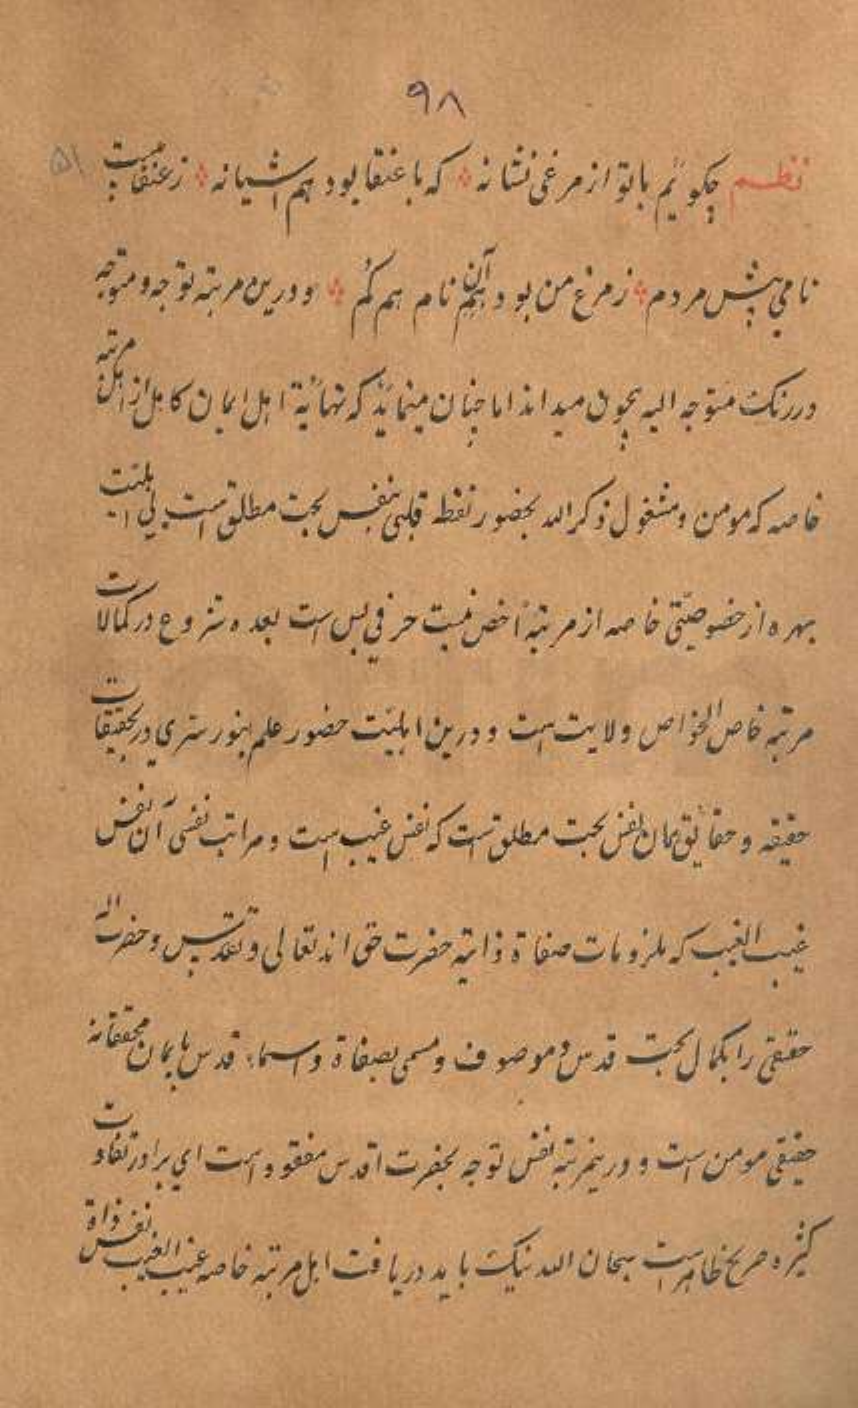 ۹۸
۵۱
نظم چگویم با تو از مرغی نشانه که با عنقا بود هم آشیانه زعنقا هست
نامی پیش مردم زمرغ من بود آن نام هم گم و درین مرتبه توجه و متوجه
در رنگ متوجه الیه بیچون میداند اما چنان مینماید که نهایة اهل ایمان کامل از اهل مرتبه
خاصه که مومن و مشغول ذکر الله بحضور نقطه قلبی بنفس بحت مطلق است بلی اهلیت
بهره از خصوصیتی خاصه از مرتبهٔ اخص نیست حرفی بس است بعده شروع در کمالات
مرتبه خاص الخواص ولایت است و درین اهلیت حضور علم بنور سری در تحقیقات
حقیقه و حقایق همان نفس بحت مطلق است که نفس غیب است و مراتب نفسی آن نفس
غیب الغیب که ملزومات صفاة ذاتیه حضرت حق اند تعالی و تقدس و حضرت اله
حقیقی را بکمال بحت قدس و موصوف و مسمی بصفاة و اسماء قدس بایمان محققانه
حقیقی مومن است و درینمرتبه نفس توجه بحضرت اقدس مفقود است ای برادر تفاوت
کثیره صریح ظاهر است سبحان الله نیک باید دریافت اهل مرتبه خاصه غیب الغیب نفس ذاة